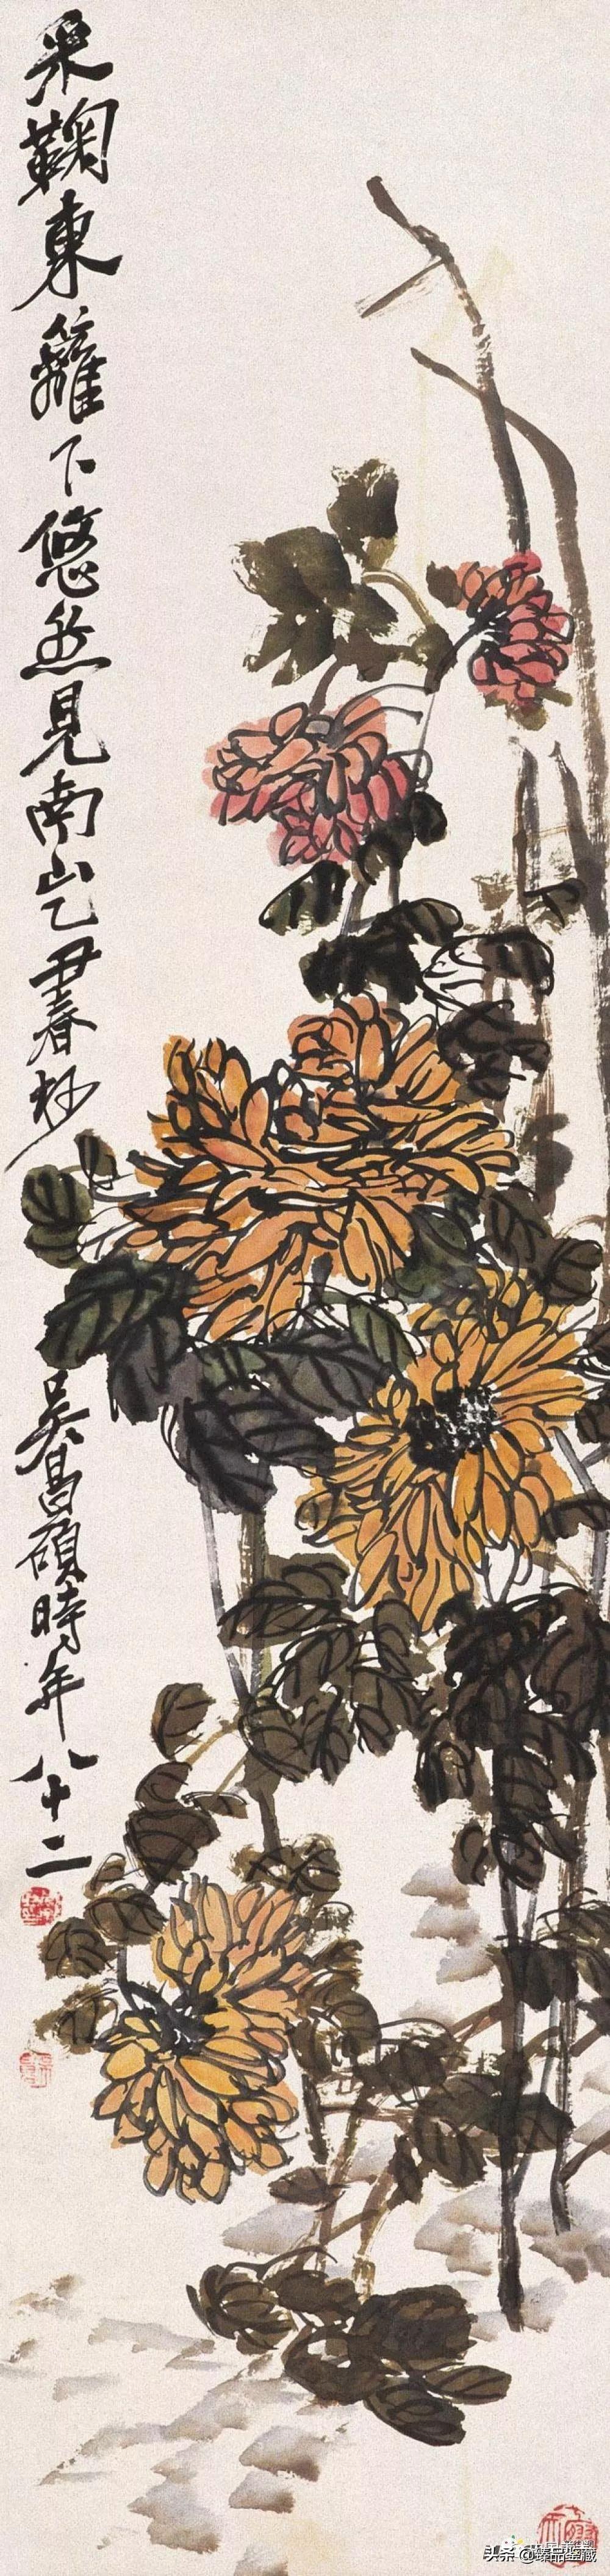 采鞠東籬下悠然見南山乙丑春杪
吳昌碩時年八十二
头条 @臻品